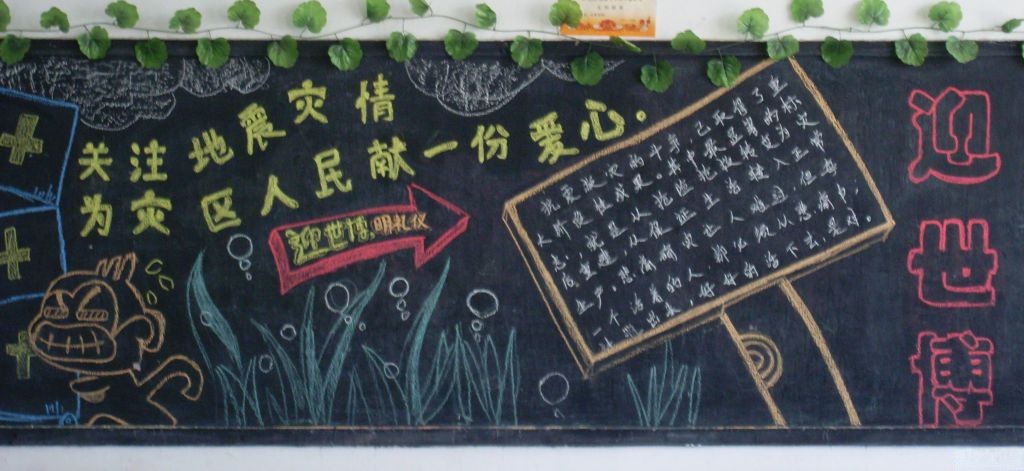 关注地震灾情
为灾区人民献一份爱心。
迎世博,明礼仪
的斗争,已取得了
大阶段性成果。其中最显著的标
志,就是从抢险
后重建,从保证生活转入正常
生产。悲痛确实让人难过,但每
一个活着的人,都必须从悲痛中
走出来,好好的活下去,是对
迎世博